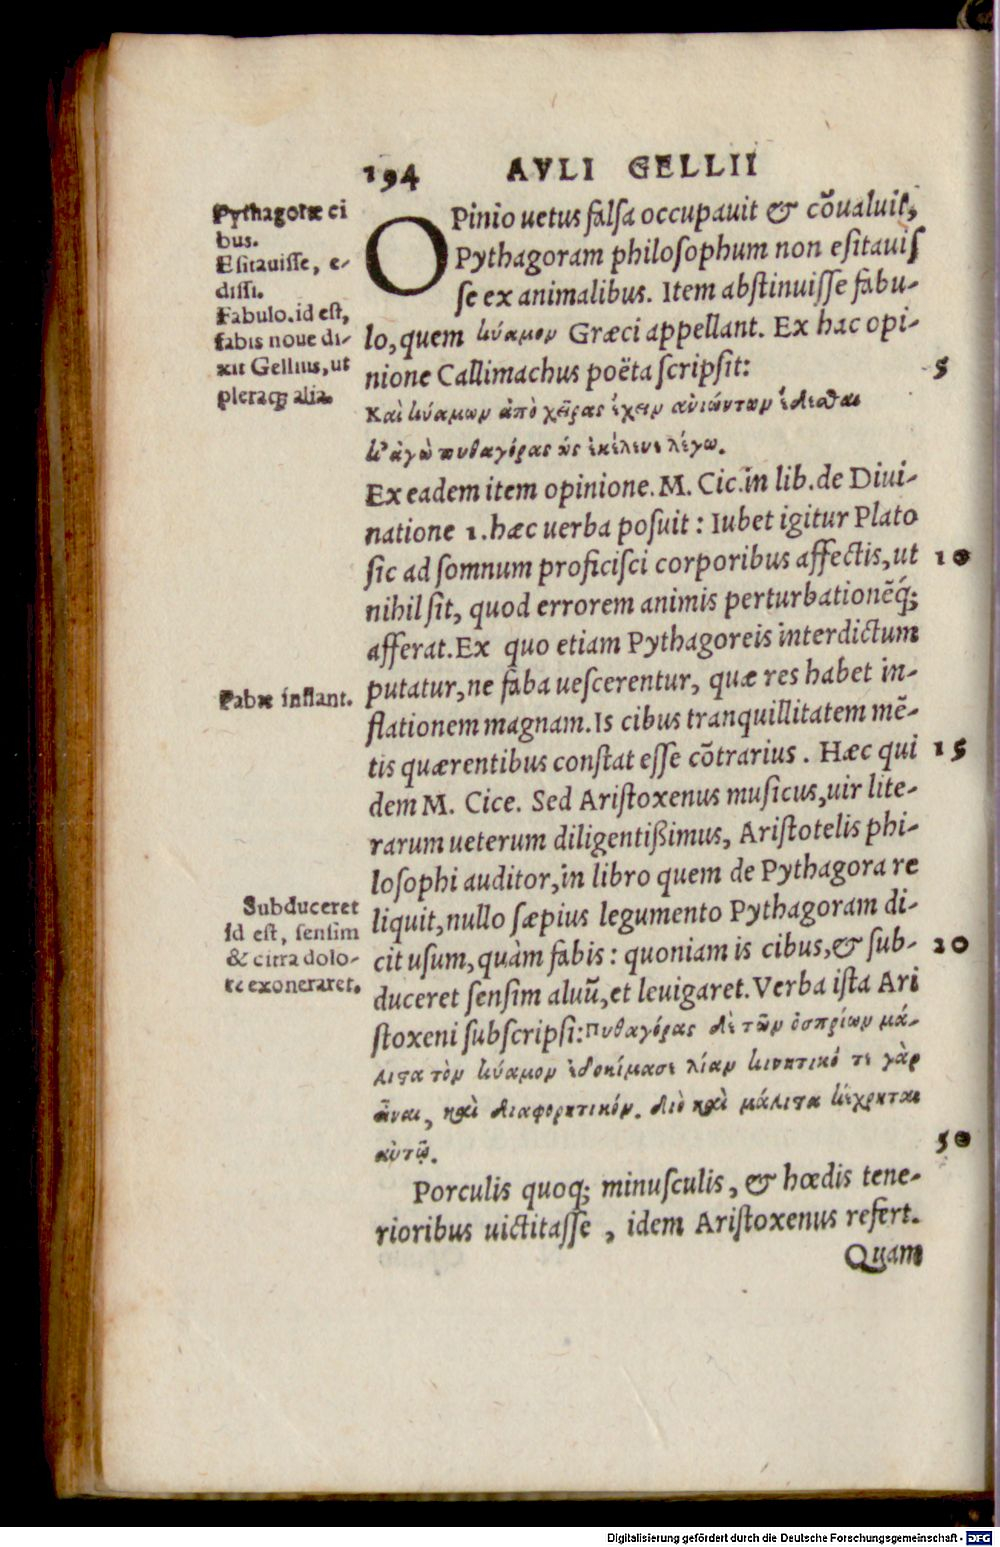 194 AVLI GELLII
Pythagoræ ci
bus.
Esitauisse, e-
dissi.
Fabulo. id est,
fabis noue di-
xit Gellius, ut
pleraq; alia.
OPinio uetus falsa occupauit & cõualuit,
Pythagoram philosophum non esitauis
se ex animalibus. Item abstinuisse fabu-
lo, quem κύαμον Græci appellant. Ex hac opi-
nione Callimachus poëta scripsit: 5
Καὶ κύαμων ἀπὸ χεῖρας ἔχειν ἀνιώντων ἔδεσθαι
κ' ἀγὼ πυθαγόρας ὡς ἐκέλευε λέγω.
Ex eadem item opinione. M. Cic. in lib. de Diui-
natione 1. hæc uerba posuit : Iubet igitur Plato
sic ad somnum proficisci corporibus affectis, ut 10
nihil sit, quod errorem animis perturbationẽq́;
afferat. Ex quo etiam Pythagoreis interdictum
putatur, ne faba uescerentur, quæ res habet in-
Fabæ inflant.
flationem magnam. Is cibus tranquillitatem mẽ-
tis quærentibus constat esse cõtrarius . Hæc qui 15
dem M. Cice. Sed Aristoxenus musicus, uir lite-
rarum ueterum diligentißimus, Aristotelis phi-
losophi auditor, in libro quem de Pythagora re
liquit, nullo sæpius legumento Pythagoram di-
Subduceret
id est, sensim
& citra dolo-
re exoneraret.
cit usum, quàm fabis : quoniam is cibus, & sub- 20
duceret sensim aluũ, et leuigaret. Verba ista Ari
stoxeni subscripsi: Πυθαγόρας δὲ τῶν ὀσπρίων μά-
λιστα τὸν κύαμον ἐδοκίμασε λίαν κινητικό τε γὰρ
εἶναι, καὶ διαφορητικόν. διὸ καὶ μάλιστα κέχρηται
αὐτῷ. 50
Porculis quoq; minusculis, & hœdis tene-
rioribus uictitasse , idem Aristoxenus refert.
Quam
Digitalisierung gefördert durch die Deutsche Forschungsgemeinschaft - DFG